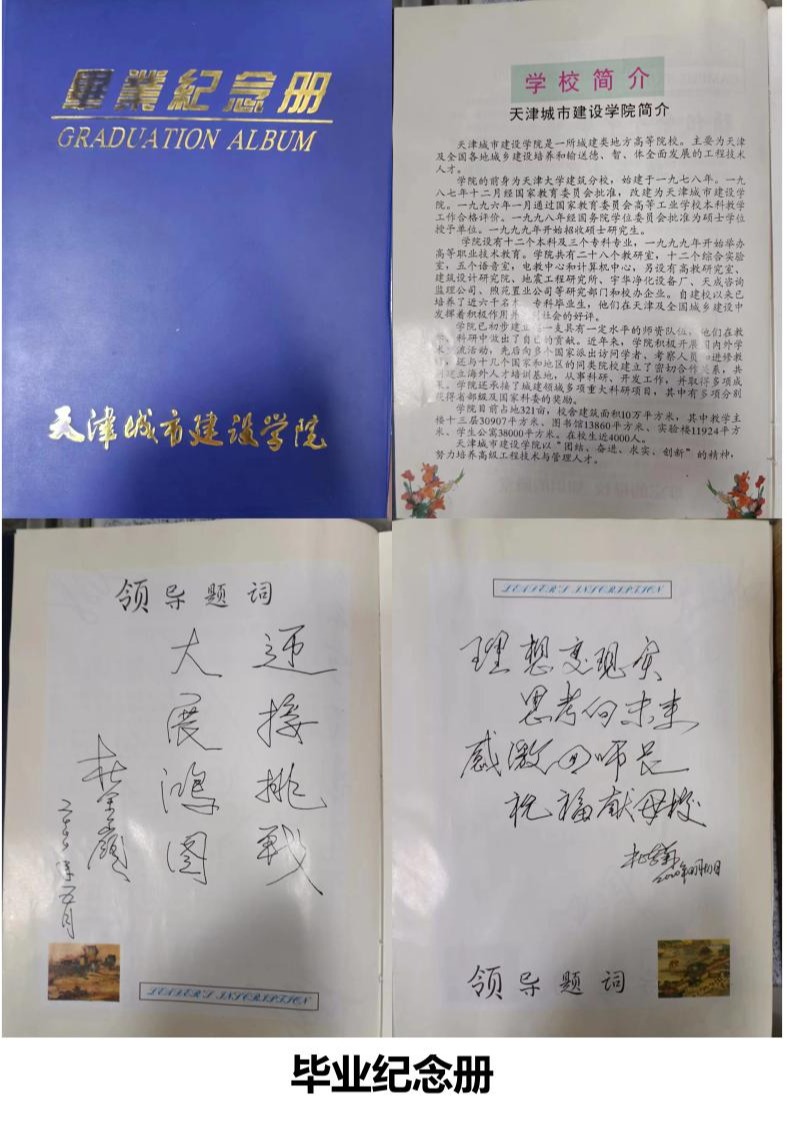 畢業紀念册
GRADUATION ALBUM
天津城市建设学院
学校简介
天津城市建设学院简介
天津城市建设学院是一所城建类地方高等院校。主要为天津
及全国各地城乡建设培养和输送德、智、体全面发展的工程技术
人才。
学院的前身为天津大学建筑分校，始建于一九七八年。一九
八七年十二月经国家教育委员会批准，改建为天津城市建设学
院。一九九六年一月通过国家教育委员会高等工业学校本科教学
工作合格评价。一九九八年经国务院学位委员会批准为硕士学位
授予单位。一九九九年开始招收硕士研究生。
学院设有十二个本科及三个专科专业，一九九九年开始举办
高等职业技术教育。学院共有二十八个教研室，十二个综合实验
室，五个语音室，电教中心和计算机中心，另设有高教研究室、
建筑设计研究院、地震工程研究所、宇华净化设备厂、天成咨询
监理公司、煦苑置业公司等研究部门和校办企业。自建校以来已
培养了近六千名本、专科毕业生，他们在天津及全国城乡建设中
发挥着积极作用并 社会的好评。
学院已初步建立 一支具有一定水平的师资队伍，他们在教
科研中做出了自己的贡献。近年来，学院积极开展国内外学
术 流活动，先后向多个国家派出访问学者、考察人员和进修教
还与十几个国家和地区的同类院校建立了密切合作关系，共
建立海外人才培训基地，从事科研、开发工作，并取得多项成
果。学院还承接了城建领域多项重大科研项目，其中有多项分别
获得省部级及国家科委的奖励。
学院目前占地321亩，校舍建筑面积10万平方米，其中教学主
楼十三层30907平方米、图书馆13860平方米、实验楼11924平方
米、学生公寓38000平方米。在校生近4000人。
天津城市建设学院以“团结、奋进、求实、创新”的精神，
努力培养高级工程技术与管理人才。
领导题词
迎接挑战
大展鸿图
二〇〇〇年五月
LEADER'S INSCRIPTION
LEADER'S INSCRIPTION
理想变现实
思考向未来
感激回师长
祝福献母校
领导题词
毕业纪念册